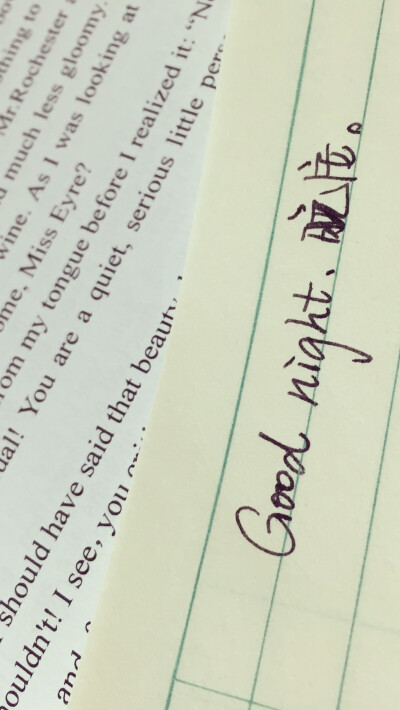 to
Mr.Rochester
much less gloomy.
wine. As I was looking at
Miss Eyre?
my tongue before I realized it: “
You are a quiet, serious little
should have said that beauty
I see, you
and
Good night、